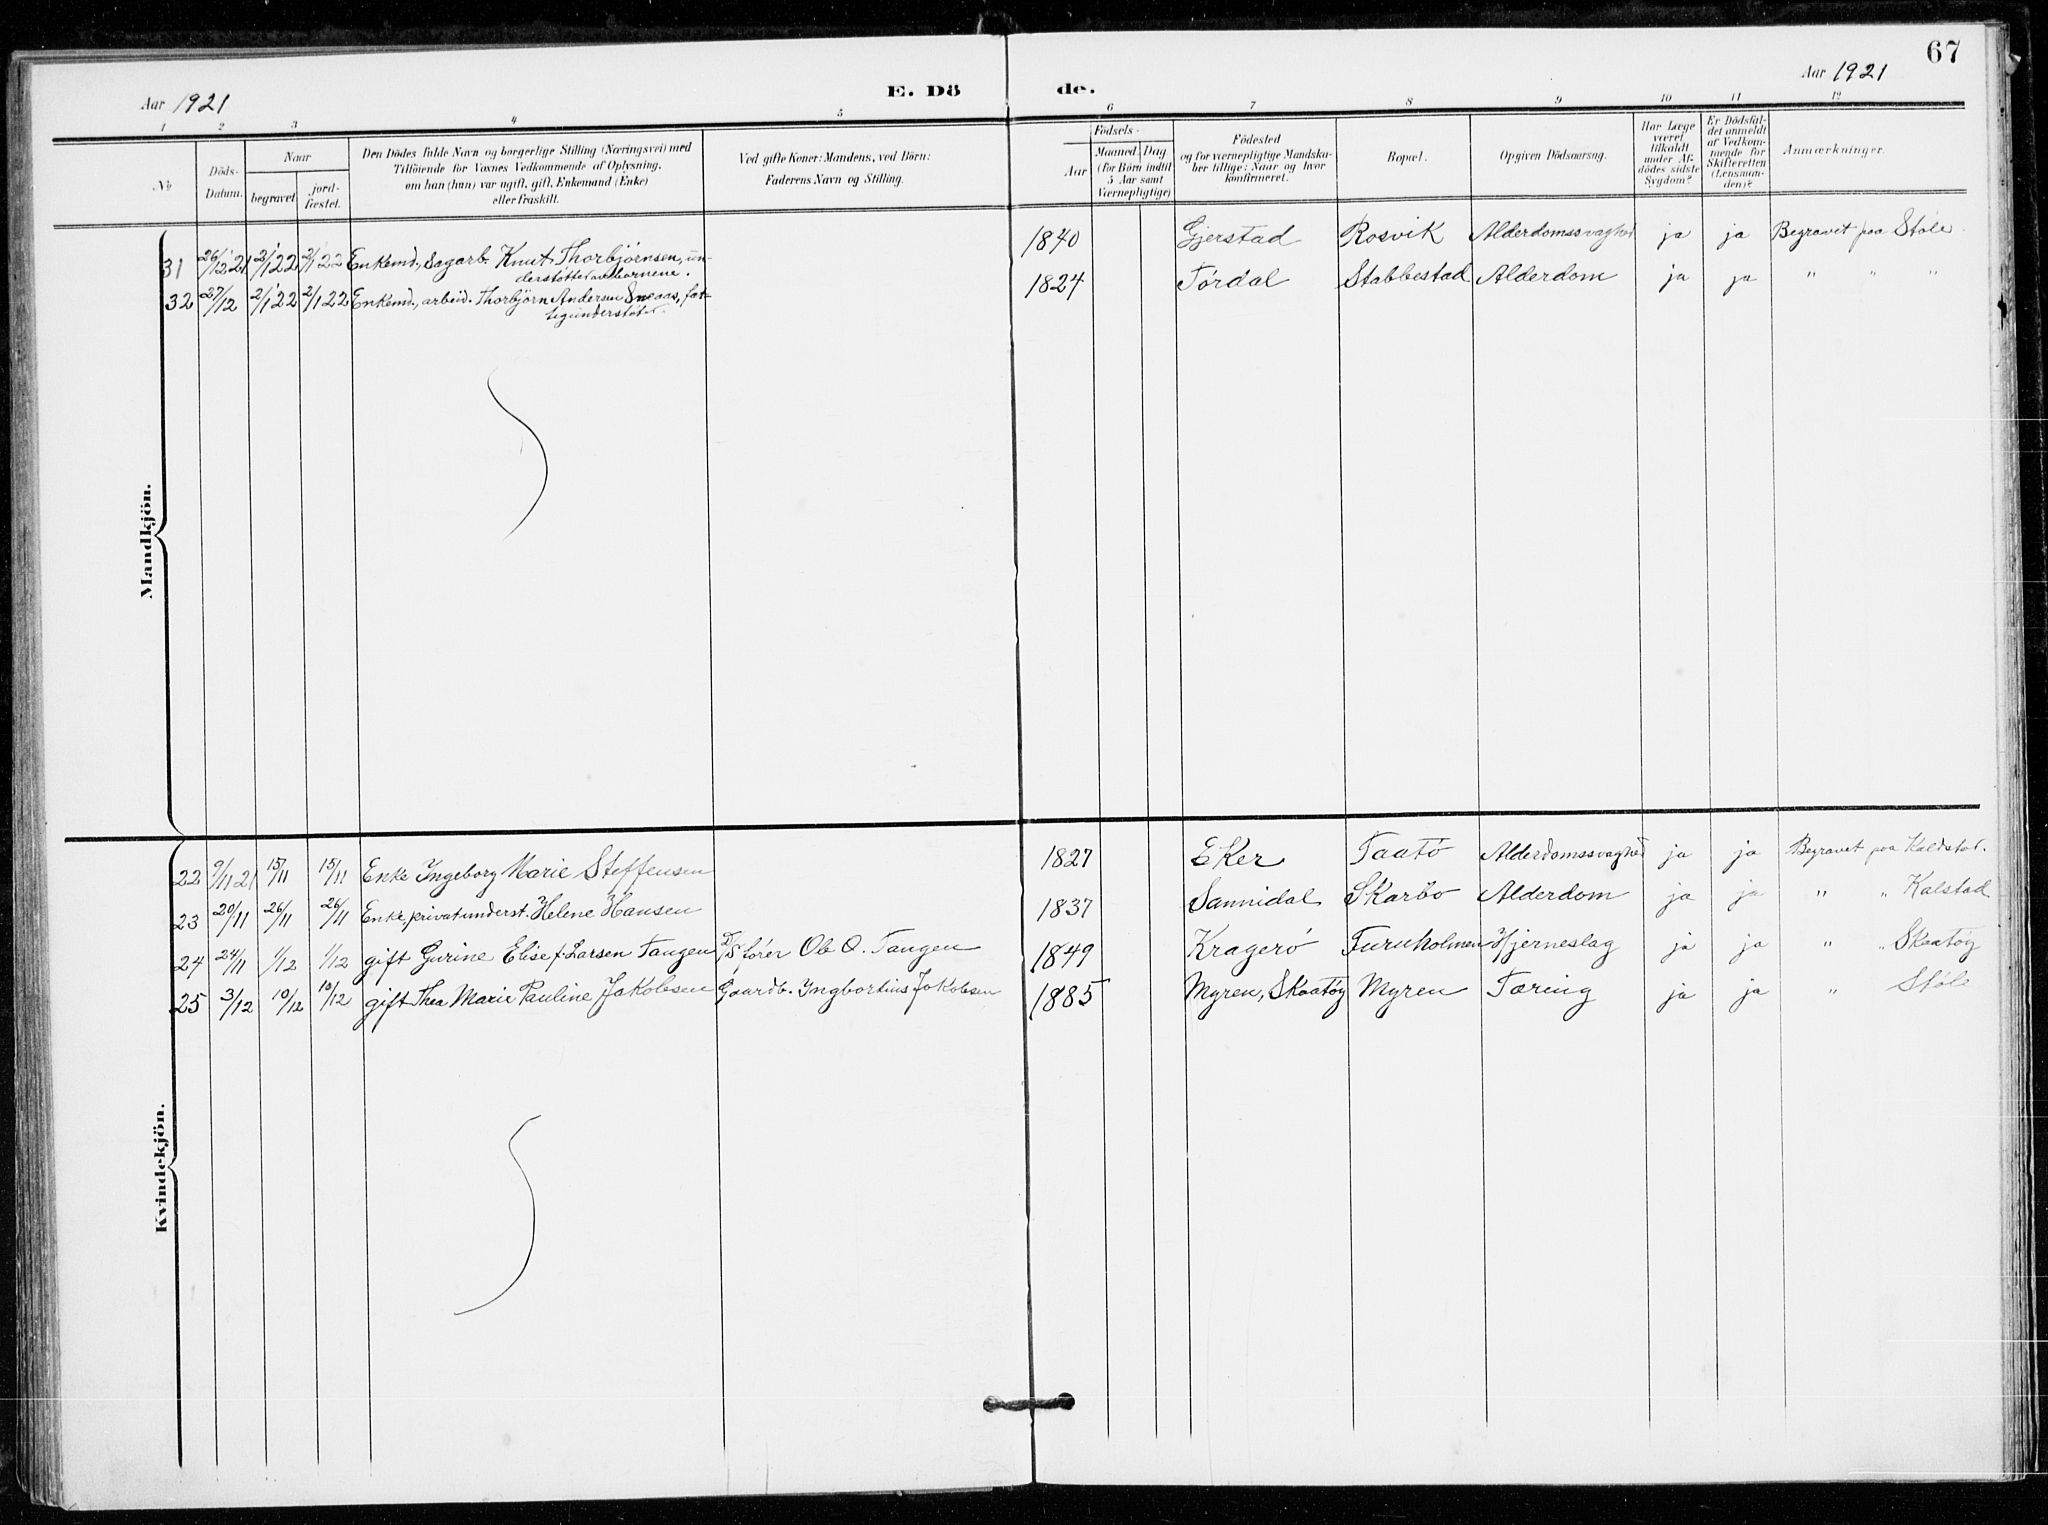 67
Aar 1921 E. Dö de. Aar 1921
1 2 3 4 5 6 7 8 9 10 11 12
No
Döds-Datum.
Naar
begravet
jord-fæstet.
Den Dödes fulde Navn og borgerlige Stilling (Næringsvei) med
Tilföiende for Voxnes Vedkommende af Oplysning,
om han (hun) var ugift, gift, Enkemand (Enke)
eller fraskilt.
Ved gifte Koner: Mandens, ved Börn:
Faderens Navn og Stilling.
Födsels-
Aar
Maaned. Dag
(for Börn indtil
5 Aar samt
Værnepligtige)
Födested
og for værnepligtige Mandska-
ber tillige: Naar og hvor
konfirmeret.
Bopæl.
Opgiven Dödsaarsag.
Har Læge
været
tilkaldt
under Af-
dödes sidste
Sygdom?
Er Dödsfal-
det anmeldt
af Vedkom-
mende for
Skifteretten
(Lensman-
den)?
Anmærkninger.
Mandkjön.
31 26/12 21 2/1 22 2/1 22 Enkemd., Sagarb. Knut Thorbjörnsen, un-
derstöttet av barnene. 1840 Gjerstad Rosvik Alderdomssvaghed ja ja Begravet paa Støle.
32 27/12 2/1 22 2/1 22 Enkemd., arbeid. Thorbjörn Andersen Sneaas, fat-
tigunderstöttet. 1824 Tørdal Stabbestad Alderdom ja ja " " "
Kvindekjön.
22 9/11 21 15/11 15/11 Enke Ingeborg Marie Steffensen 1827 Eker Taatö Alderdomssvaghed ja ja Begravet paa Kaldstad.
23 20/11 26/11 26/11 Enke, privatunderst. Helene Hansen 1837 Sannidal Skarbo Alderdom ja ja " " Kalstad
24 24/11 1/12 1/12 gift Gurine Elise f. Larsen Tangen D/S fører Ole O. Tangen 1849 Kragerö Furuholmen Hjerneslag ja ja " " Skaatøy
25 3/12 10/12 10/12 gift Thea Marie Pauline Jakobsen Gaardb. Ingbortius Jakobsen 1885 Myren, Skaatøy Myren Tæring ja ja " Støle